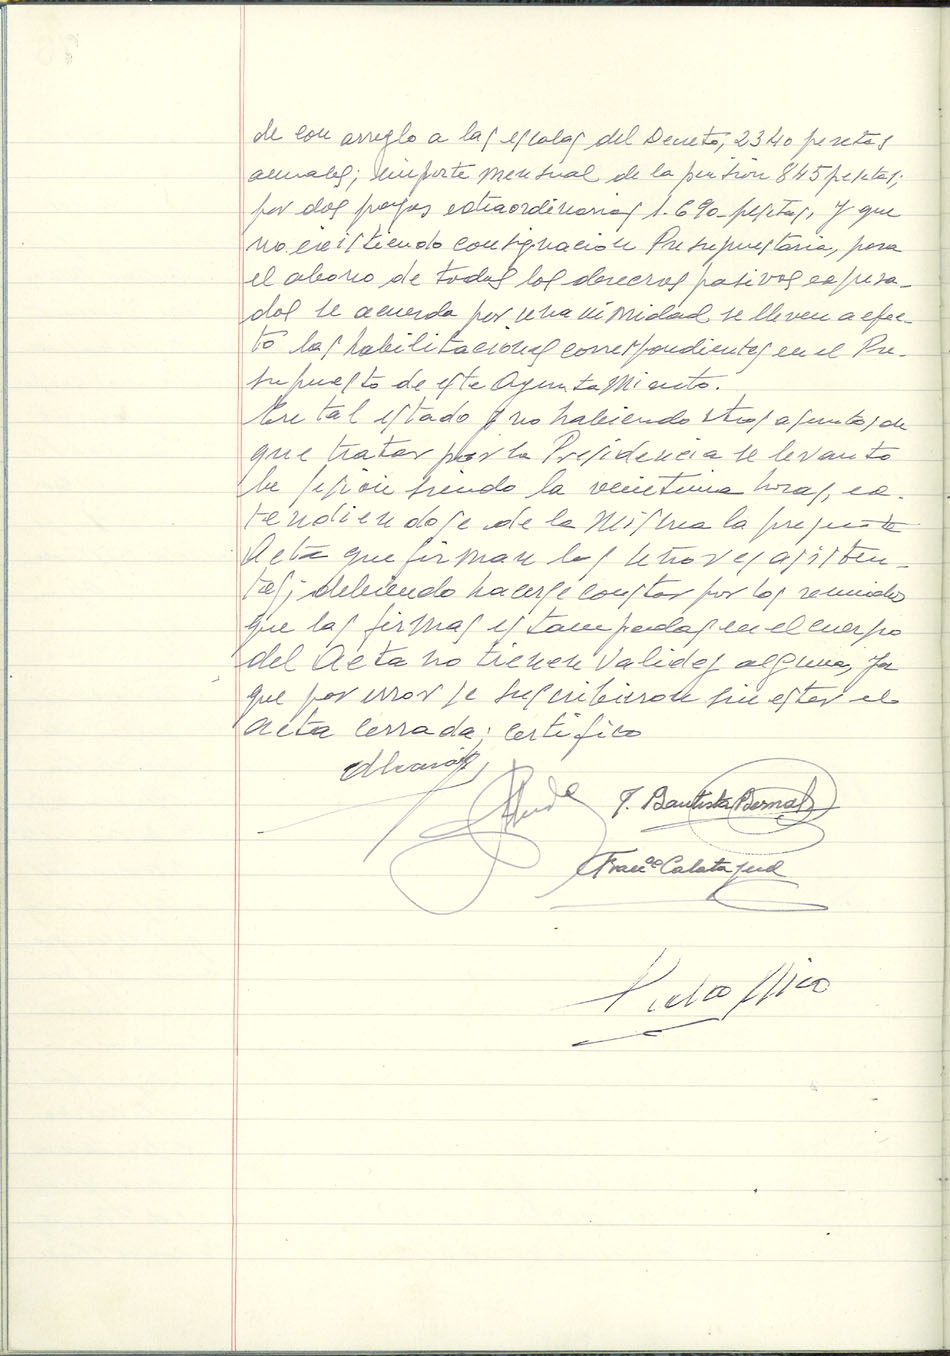 de con arreglo a las escalas del Decreto, 2340 pesetas
anuales; importe mensual de la pensión 845 pesetas;
por dos pagas extraordinarias 1.690 pesetas, y que
no existiendo consignación Presupuestaria, para
el abono de todos los derechos pasivos expresa-
dos se acuerda por unanimidad se lleven a efec-
to las habilitaciones correspondientes en el Pre-
supuesto de este Ayuntamiento.
En tal estado y no habiendo otros asuntos de
que tratar por la Presidencia se levanto
la sesion siendo la veintiuna horas, ex-
tendiendose de la misma la presente
Acta que firman los señores asisten-
tes; debiendo hacerse constar por los reunidos
que las firmas estampadas en el cuerpo
del Acta no tienen validez alguna, ya
que por error se suscribieron sin estar el
Acta cerrada; certifico
J. Bautista Bernal
Franco Calatayud